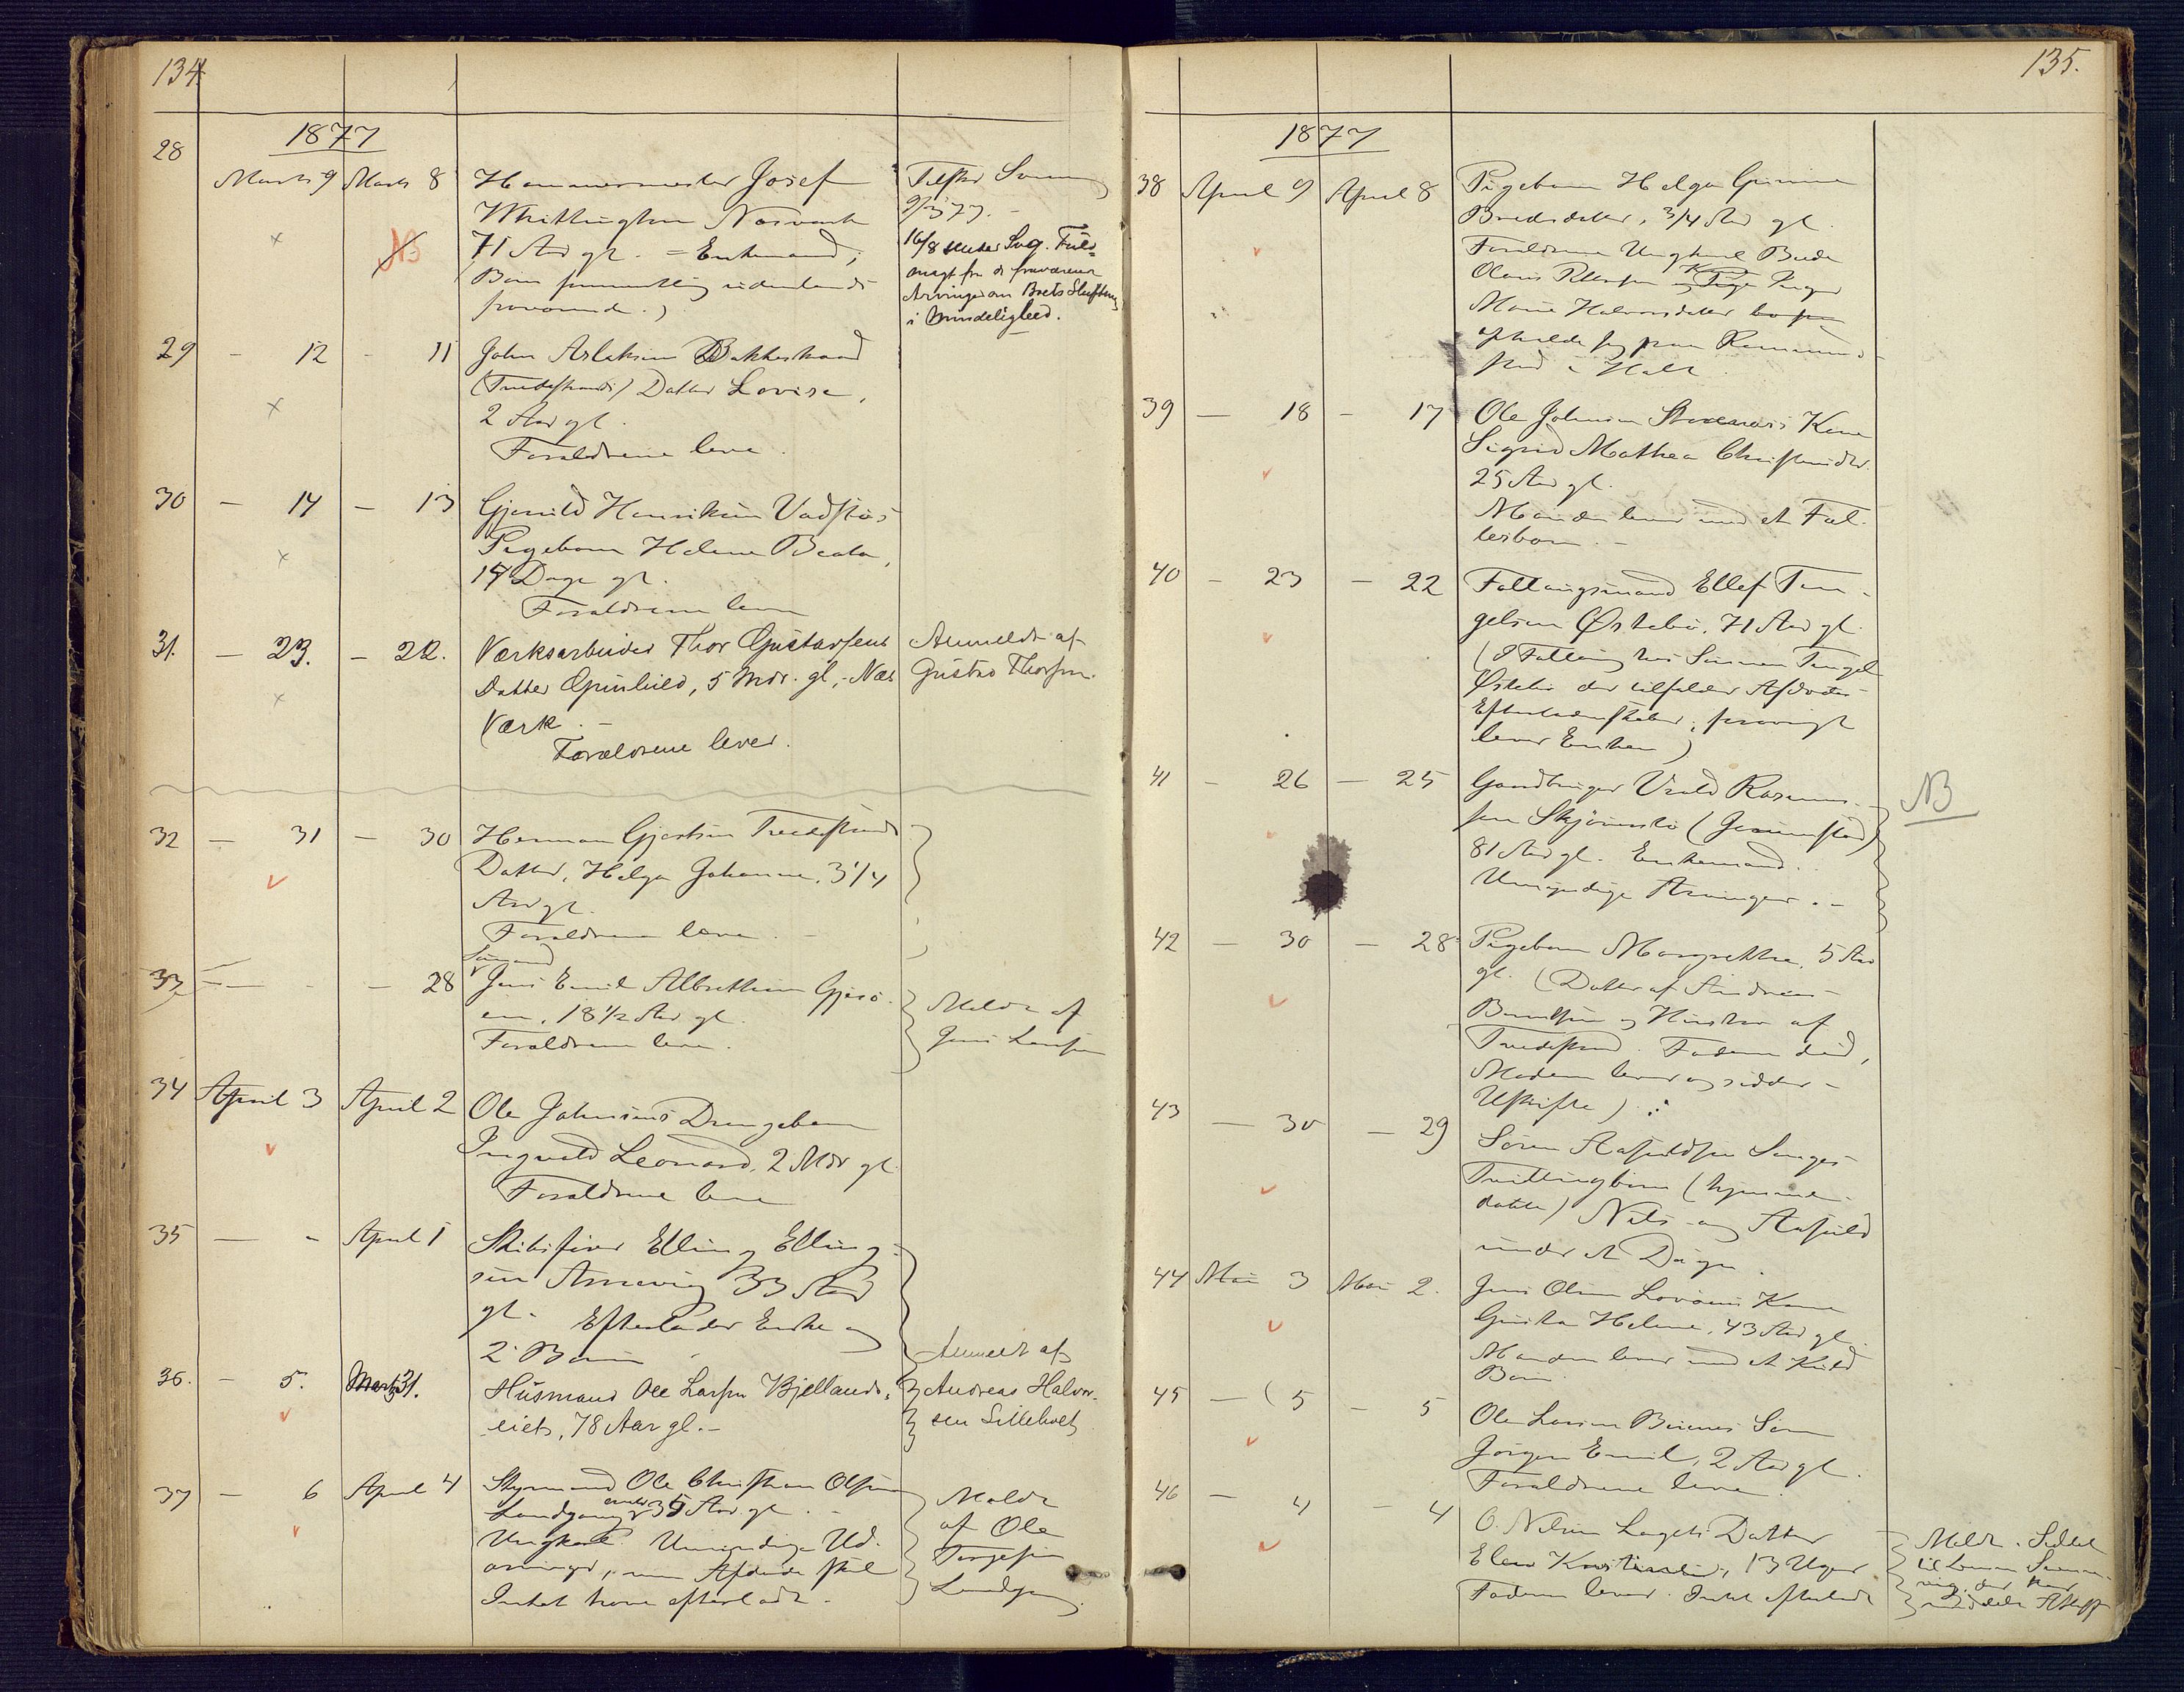 134
1877
28 Marts 9 Marts 8 Hammermester Josef
Whittington Næsværk
71 Aar gl. = Enkemand;
NB
Børn
Tilskr
9/3 77.
16/8
magt fra de fraværende
Arvinger om Boets Slutning
i Mindelighed.
29 - 12 - 11 John Aslaksen Bakkeskaad
(Tvedestrand) Datter Lovise,
2 Aar gl.
Forældrene leve.
30 - 14 - 13 Gjeruld Henriksen Vadstøs
Pigebarn Helene Beata,
14 Dage gl.
Forældrene leve
31. - 23. - 22. Værksarbeider Thor Gustavsens
Datter Gunhild, 5 Mdr. gl, - Næs
Værk. -
Forældrene lever.
Anmeldt af
Gustav Thorsen.
32 - 31 - 30 Herman Gjertsen Tvedestrand
Datter, Helga Johanne, 3 1/4
Aar gl.
Forældrene leve. -
33 - - 28 Sømand Jens Emil Albretsen Gjesø-
en, 18 1/2 Aar gl.
Forældrene leve.
Meldt af
Jens Larsen
34 April 3 April 2 Ole Johnsens Drengebarn
Ingvald Leonard, 2 Mdr gl.
Forældrene leve
35 - - April 1 Skibsfører Elling Elling-
sen Arnevig 33 Aar
gl. Efterlader Enke og
2 Børn
36. - 5. Marts 31. Husmand Ole Larsen Kjellands-
eiet, 78 Aar gl. -
Anmeldt af
Andreas Halvor-
sen Lilleholt
37 - 6 April 4 Styrmand Ole Christian Olsen
Landgang 35 Aar gl. -
Ungkarl. Umyndige Ud-
arvinger, men Afdøde skal
Intet have efterladt.
Meldt
af Ole
Terjesen
Landgang
135.
1877
38 April 9 April 8 Pigebarn Helga Gurine
Bredesdatter, 3/4 Aar gl.
Forældrene Ungkarl Brede
Olaus Pettersen og Pige Inger
Marie Halvorsdatter
opholder sig paa
i Holt
39 - 18 - 17 Ole Johnsen Kone
Sigrid Mathea Christensdtr.
25 Aar gl.
Manden lever med et Fæl-
lesbarn. -
40 - 23 - 22 Føllaugsmand Ellef Ten-
gelsen Østebø, 71 Aar gl.
(I Føllaug hos Sønnen Tengel
Østebø der tilfalder Afdødes
Efterladenskaber, forøvrigt
lever Enken)
41 - 26 - 25 Gaardbruger Vrold Rasmus-
sen Skjønnesbø (Gjerrestad)
81 Aar gl. Enkemand.
Umyndige Arvinger. -
NB
42 - 30 - 28 Pigebarn Margrethe, 5 Aar
gl. (Datter af Andreas
Berntsen og Hustru af
Tvedestrand. Faderen død,
Moderen lever og sidder
Uskifte)
43 - 30 - 29 Søren Aasuldsen Songes
Tvillingbørn (hjemme-
døbte) Nils og Aasuld
under et Døgn.
44 Mai 3 Mai 2. Jens Olsen Lovøens Kone
Gurine Helene, 43 Aar gl.
Manden lever med et Kuld
Børn
45 - 5 - 5 Ole Larsen Søn
Jørgen Emil, 2 Aar gl.
Forældrene leve.
46 - 4 - 4 O. Nilsen Lagets Datter
Elen Kristine, 13 Uger
Faderen lever. Intet efterladt
Meldt. Seddel
til
der har